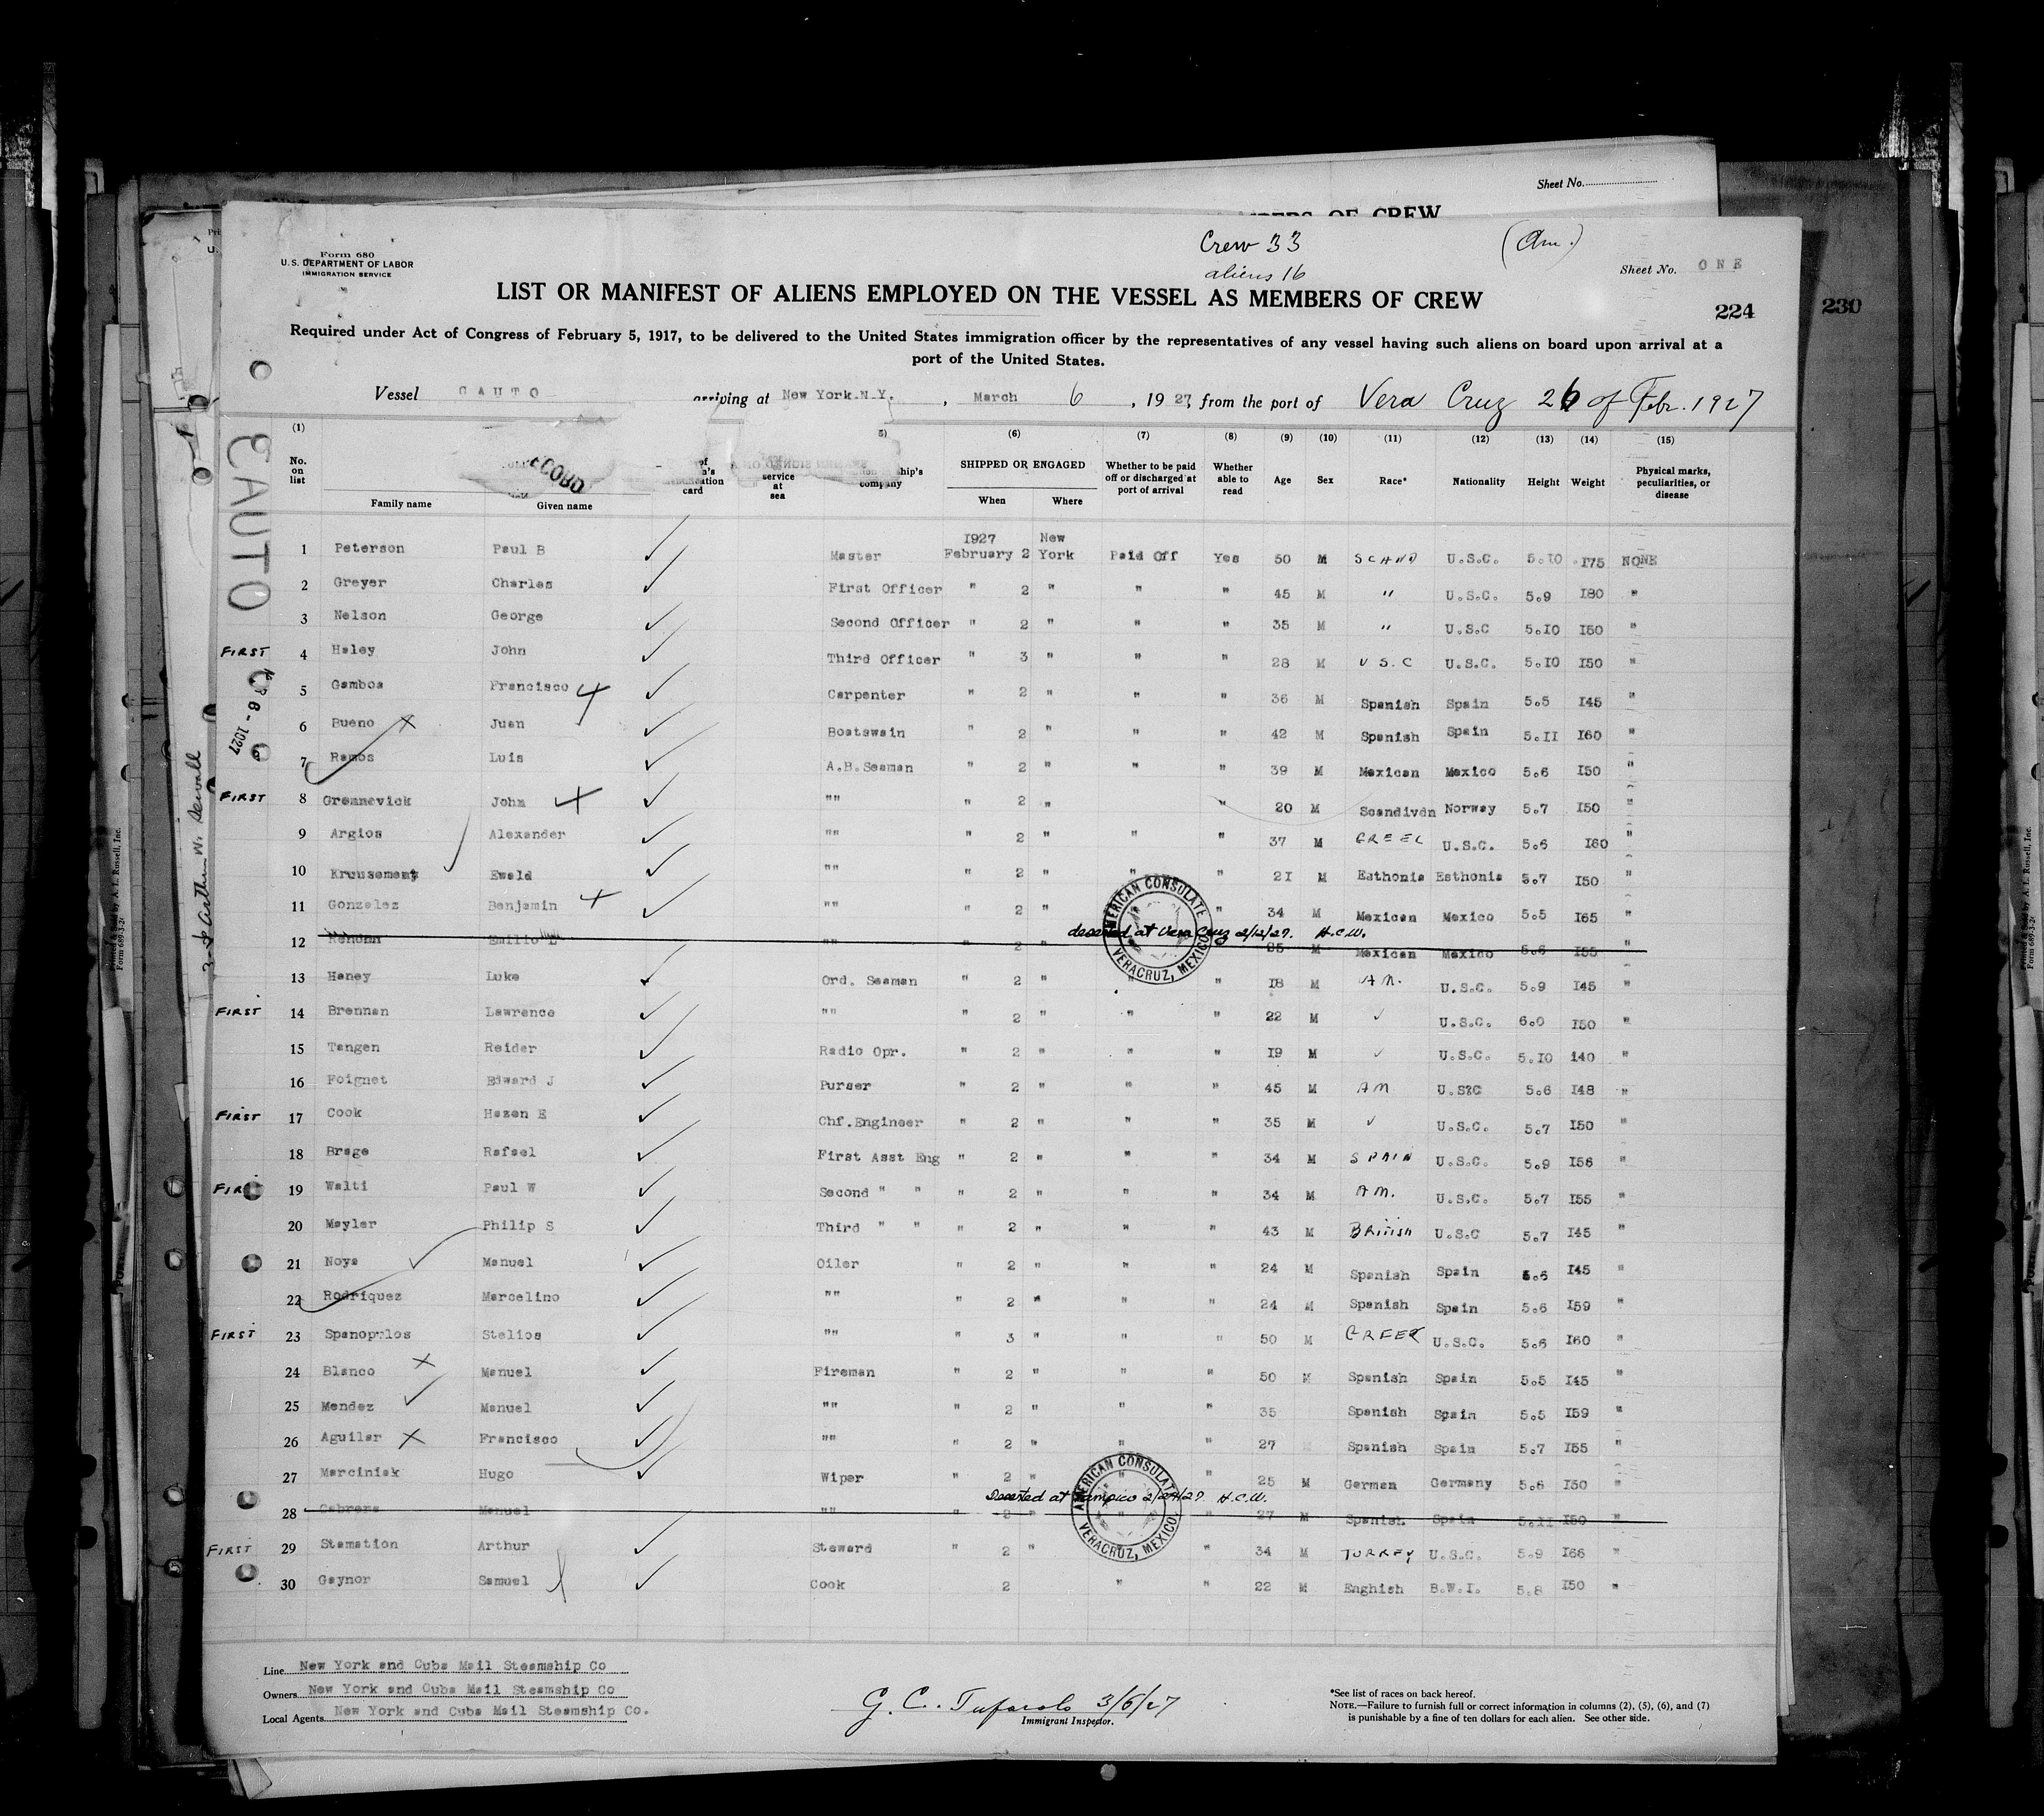 Sheet No.
MEMBERS OF CREW
Form 680
U.S. DEPARTMENT OF LABOR
IMMIGRATION SERVICE
Crew 33
aliens 16
(Am.)
Sheet No. ONE
LIST OR MANIFEST OF ALIENS EMPLOYED ON THE VESSEL AS MEMBERS OF CREW
224
230
Required under Act of Congress of February 5, 1917, to be delivered to the United States immigration officer by the representatives of any vessel having such aliens on board upon arrival at a
port of the United States.
Vessel CAUTO arriving at New York.N.Y. , March 6 , 19 27, from the port of Vera Cruz 26 of Febr. 1927
(1) (6) (7) (8) (9) (10) (11) (12) (13) (14) (15)
No. on list Family name Given name card service at sea ship's company SHIPPED OR ENGAGED When Where Whether to be paid off or discharged at port of arrival Whether able to read Age Sex Race* Nationality Height Weight Physical marks, peculiarities, or disease
CAUTO
6-1927
Arthur W. Sewall
1 Peterson Paul B Master 1927 February 2 New York Paid Off Yes 50 M SCAND U.S.C. 5.10 175 NONE
2 Greyer Charles First Officer " 2 " " " 45 M " U.S.C. 5.9 180 "
3 Nelson George Second Officer " 2 " " " 35 M " U.S.C 5.10 150 "
FIRST 4 Haley John Third Officer " 3 " " " 28 M U.S.C U.S.C. 5.10 150 "
5 Gamboa Francisco Carpenter " 2 " " " 36 M Spanish Spain 5.5 145 "
6 Bueno Juan Boatswain " 2 " " " 42 M Spanish Spain 5.11 160 "
7 Ramos Luis A.B.Seaman " 2 " " " 39 M Mexican Mexico 5.6 150 "
FIRST 8 Gremnevick John "" " 2 " " 20 M Scandivdn Norway 5.7 150 "
9 Argios Alexander "" " 2 " " " 37 M GREEC U.S.C. 5.6 160 "
10 Kruusement Ewald "" " 2 " " " 21 M Esthonia Esthonia 5.7 150 "
11 Gonzalez Benjamin "" " 2 " " 34 M Mexican Mexico 5.5 165 "
deserted at Vera Cruz 2/12/27. H.C.W.
AMERICAN CONSULATE VERACRUZ, MEXICO
12 Rendon Emilio "" " 2 M Mexican Mexico 5.6 155
13 Haney Luke Ord. Seaman " 2 " " " 18 M AM. U.S.C. 5.9 145 "
FIRST 14 Brennan Lawrence "" " 2 " " " 22 M U.S.C. 6.0 150 "
15 Tangen Reider Radio Opr. " 2 " " " 19 M U.S.C. 5.10 140 "
16 Foignet Edward J Purser " 2 " " " 45 M AM U.S?C 5.6 148 "
FIRST 17 Cook Hazen E Chf.Engineer " 2 " " " 35 M U.S.C. 5.7 150 "
18 Brage Rafael First Asst Eng " 2 " " " 34 M SPAIN U.S.C. 5.9 156 "
FIRST 19 Walti Paul W Second " " " 2 " " " 34 M AM. U.S.C. 5.7 155 "
20 Mayler Philip S Third " " " 2 " " " 43 M British U.S.C 5.7 145 "
21 Noya Manuel Oiler " 2 " " " 24 M Spanish Spain 5.6 145 "
22 Rodriquez Marcelino "" " 2 " " " 24 M Spanish Spain 5.6 159 "
FIRST 23 Spanoprlos Stelios "" " 3 " " " 50 M GREEK U.S.C. 5.6 160 "
24 Blanco Manuel Fireman " 2 " " " 50 M Spanish Spain 5.5 145 "
25 Mendez Manuel "" " 2 " " " 35 Spanish Spain 5.5 159 "
26 Aguilar Francisco "" " 2 " " " 27 Spanish Spain 5.7 155 "
27 Marciniak Hugo Wiper " 2 " " " 25 M German Germany 5.6 130 "
Deserted at Tampico H.C.W.
AMERICAN CONSULATE VERACRUZ, MEXICO
28 Cabrera Manuel "" " 2 " " " 27 M Spanish Spain 5.11 150 "
FIRST 29 Stamation Arthur Steward " 2 " " 34 M TURKEY U.S.C. 5.9 166 "
30 Gaynor Samuel Cook 2 " " 22 M Enghish B.W.I. 5.8 150 "
Line New York and Cuba Mail Steamship Co
Owners New York and Cuba Mail Steamship Co
Local Agents New York and Cuba Mail Steamship Co.
G. C. 3/6/27
Immigrant Inspector.
*See list of races on back hereof.
NOTE.—Failure to furnish full or correct information in columns (2), (5), (6), and (7)
is punishable by a fine of ten dollars for each alien. See other side.